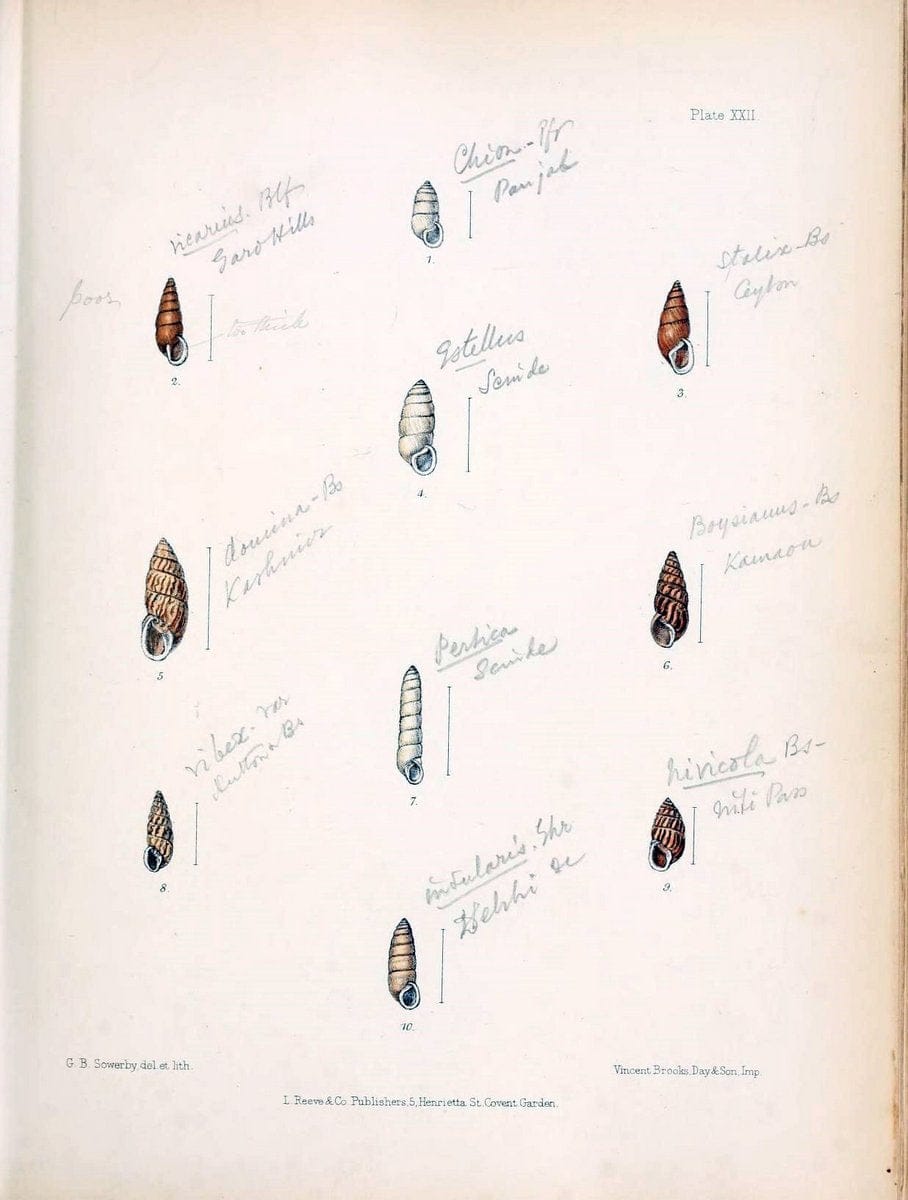 Plate XXII.
Chion - Pfr
Panjab
1.
vicarius. Blf
Garo Hills
poor
too thick
2.
Stalix - Bs
Ceylon
3.
Estellus
Scinde
4.
domina - Bs
Kashmir
5.
Boysianus - Bs
Kamaon
6.
Pertica
Scinde
7.
vibex. var
Huttoni Bs
8.
nivicola Bs -
Niti Pass
9.
insularis. Ehr
Delhi &c
10.
G. B. Sowerby, del. et lith.
Vincent Brooks, Day & Son, Imp.
L. Reeve & Co Publishers, 5, Henrietta St. Covent Garden.